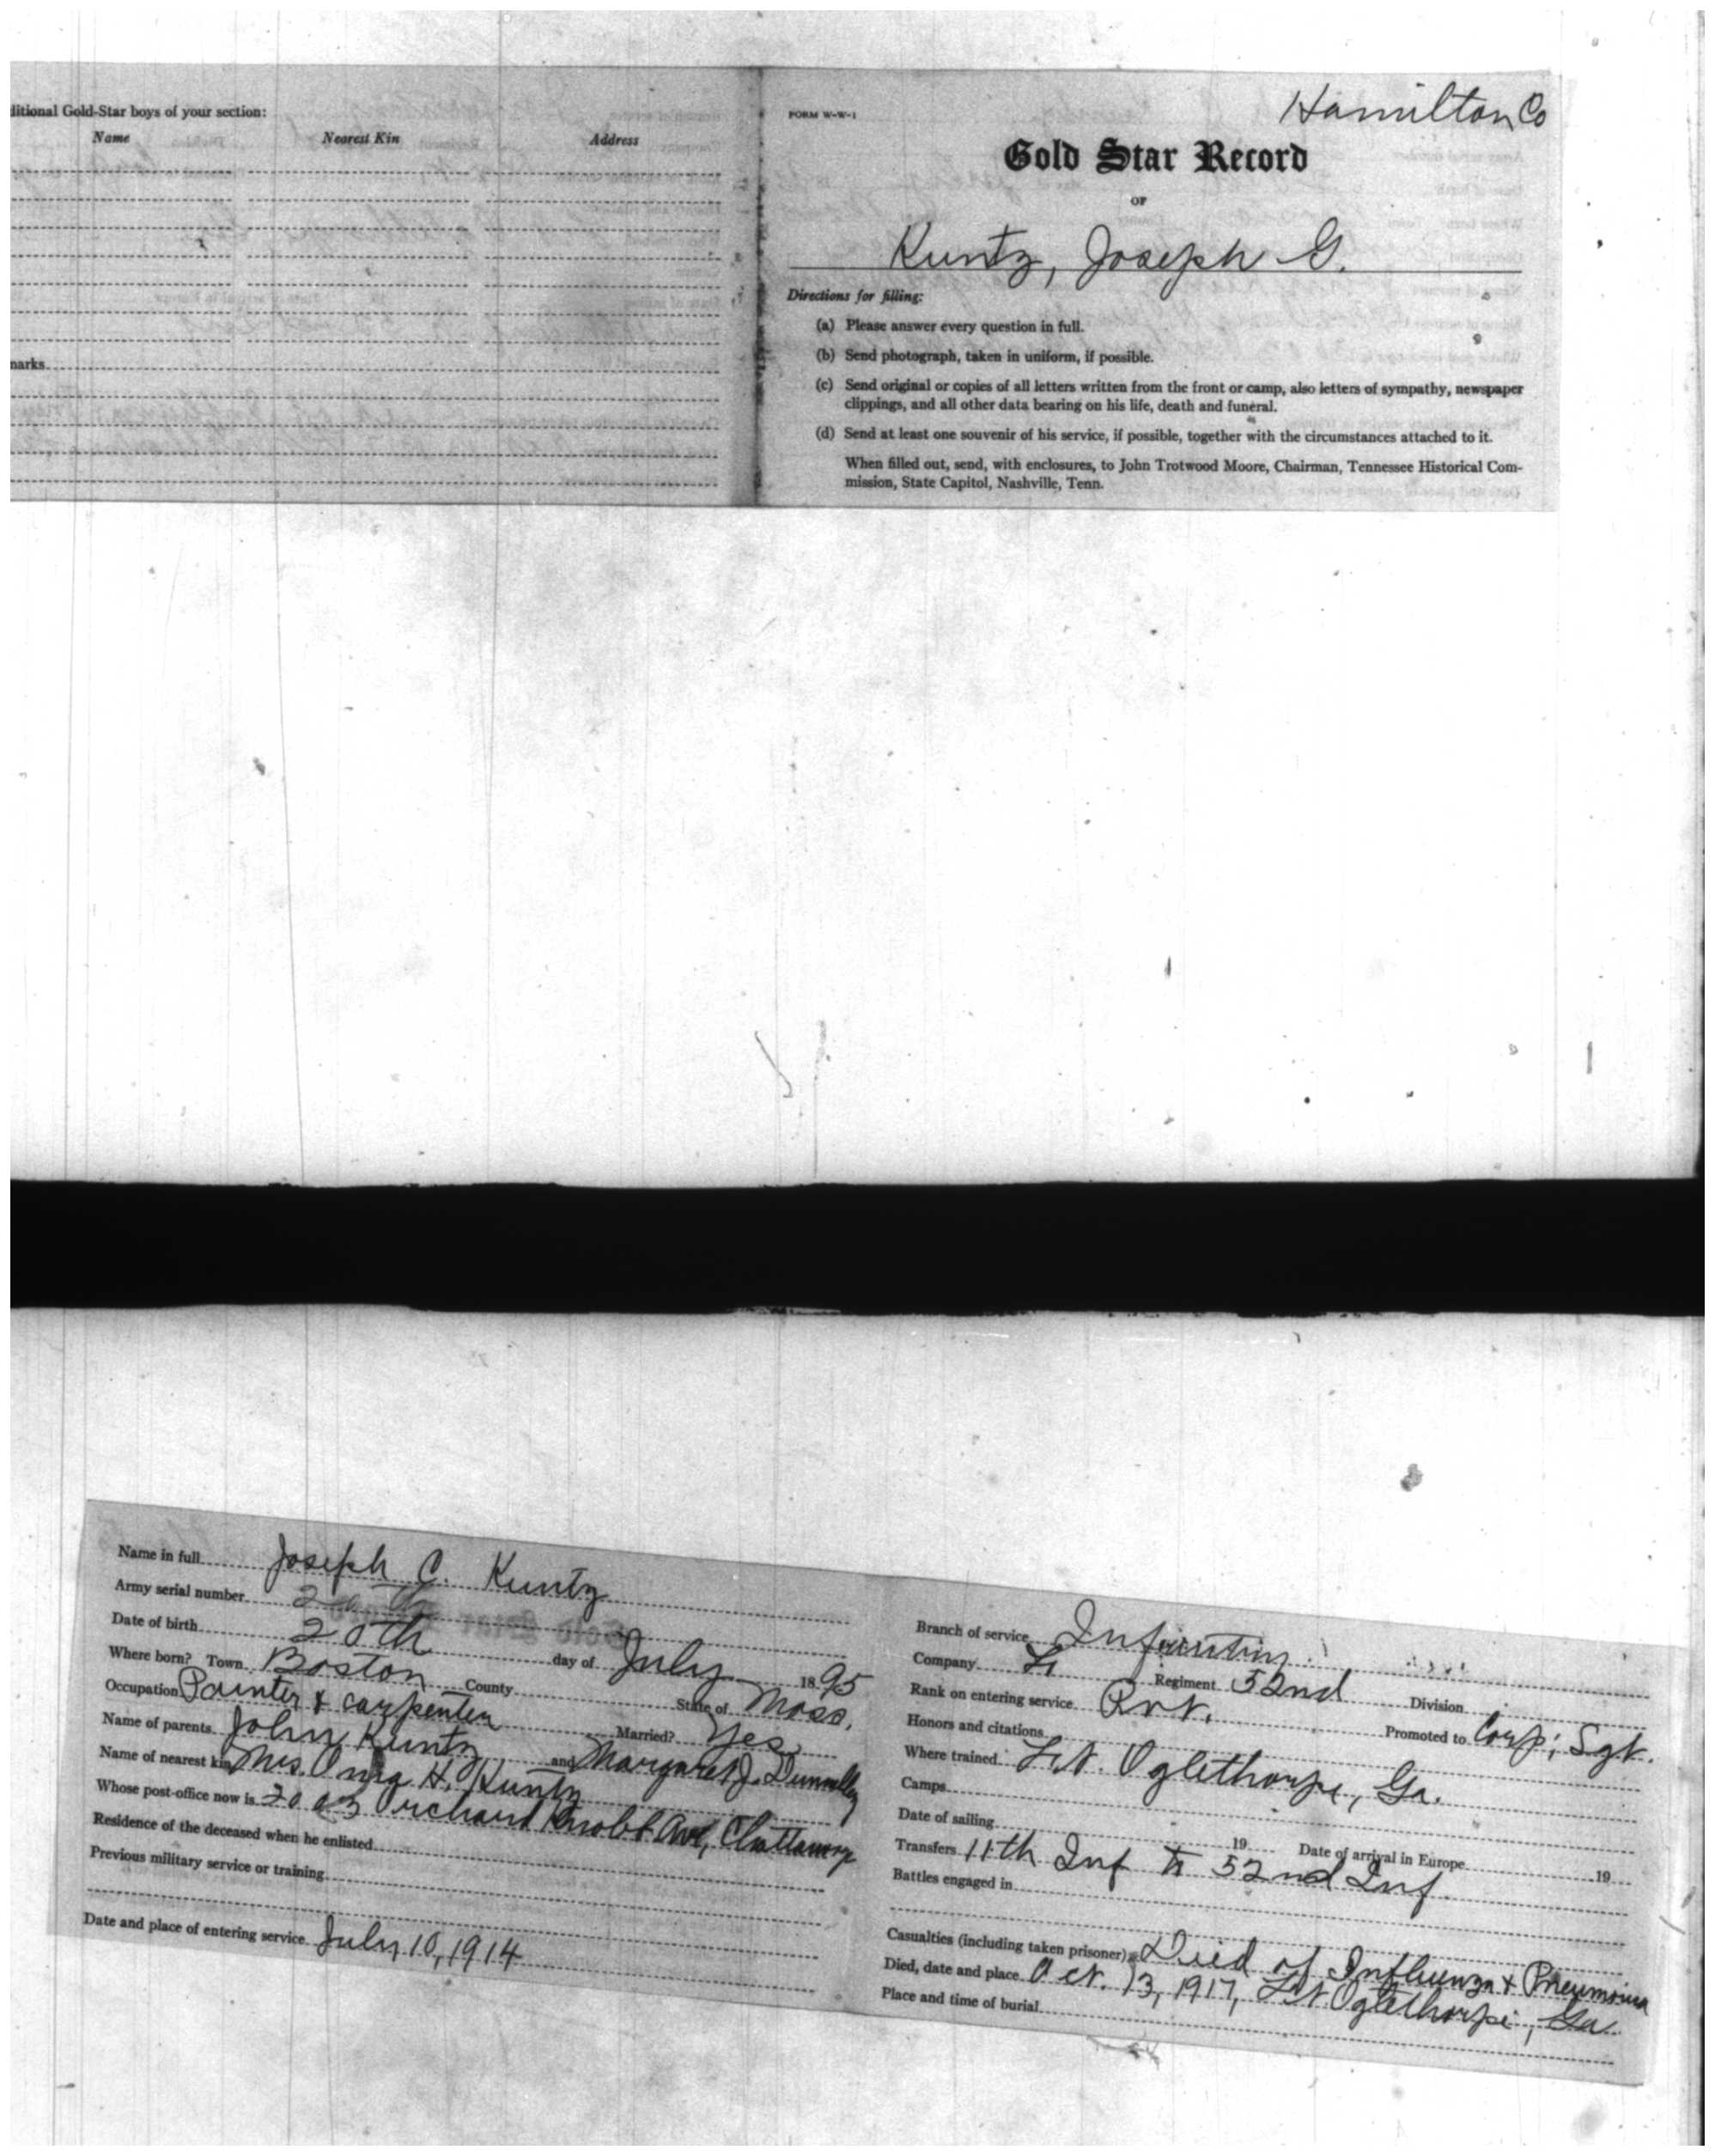 ditional Gold-Star boys of your section:
Name Nearest Kin Address
marks
FORM W-W-1
Hamilton Co
Gold Star Record
OF
Kuntz, Joseph G.
Directions for filling:
(a) Please answer every question in full.
(b) Send photograph, taken in uniform, if possible.
(c) Send original or copies of all letters written from the front or camp, also letters of sympathy, newspaper
clippings, and all other data bearing on his life, death and funeral.
(d) Send at least one souvenir of his service, if possible, together with the circumstances attached to it.
When filled out, send, with enclosures, to John Trotwood Moore, Chairman, Tennessee Historical Com-
mission, State Capitol, Nashville, Tenn.
Name in full Joseph C. Kuntz
Army serial number
Date of birth 20th day of July 1895
Where born? Town Boston County State of Mass.
Occupation Painter & carpenter Married? Yes
Name of parents John Kuntz and Margaret J. Dunnelley
Name of nearest kin Mrs. H. Kuntz
Whose post-office now is 2003 Orchard Knobb Ave, Chattanooga
Residence of the deceased when he enlisted
Previous military service or training
Date and place of entering service July 10, 1914
Branch of service Infantry
Company Regiment 52nd Division
Rank on entering service Pvt. Promoted to Corp; Sgt.
Honors and citations
Where trained Ft. Oglethorpe, Ga.
Camps
Date of sailing 19 Date of arrival in Europe 19
Transfers 11th Inf to 52nd Inf.
Battles engaged in
Casualties (including taken prisoner) Died of Influenza & Pneumonia
Died, date and place Oct. 13, 1917, Ft Oglethorpe, Ga.
Place and time of burial